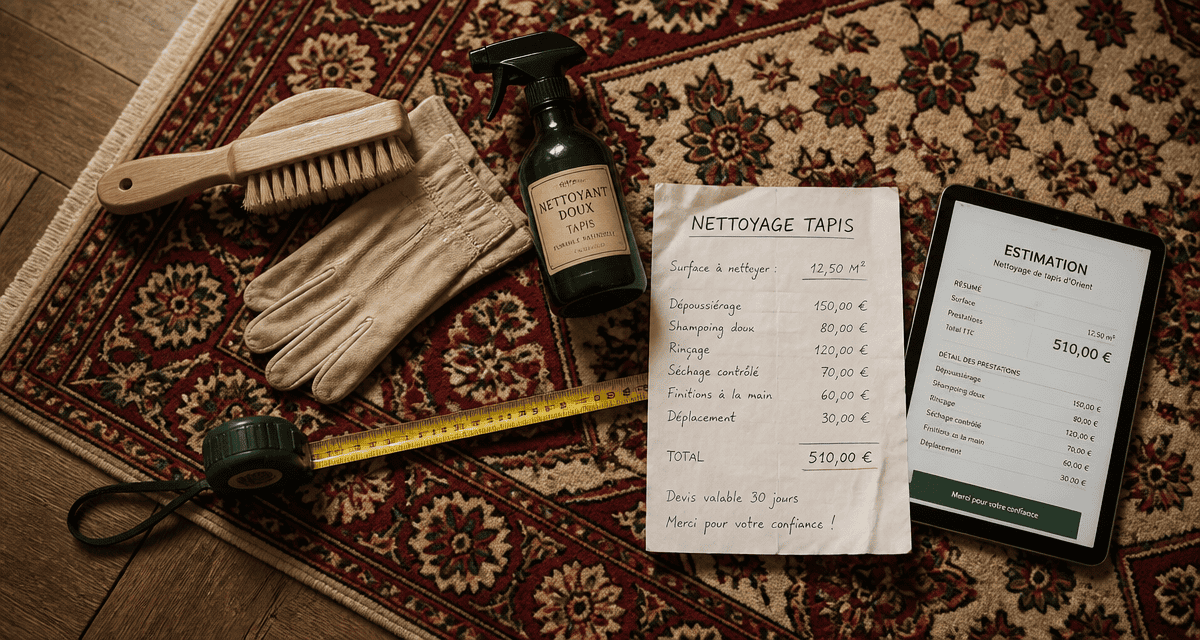 NETTOYANT
DOUX
TAPIS
NETTOYAGE TAPIS
Surface à nettoyer : 12,50 M²
Dépoussiérage 150,00 €
Shampoing doux 80,00 €
Rinçage 120,00 €
Séchage contrôlé 70,00 €
Finitions à la main 60,00 €
Déplacement 30,00 €
TOTAL 510,00 €
Devis valable 30 jours
Merci pour votre confiance !
ESTIMATION
Nettoyage de tapis d'Orient
RÉSUMÉ
Surface 12,50 m²
Prestations
Total TTC 510,00 €
DÉTAIL DES PRESTATIONS
Dépoussiérage 150,00 €
Shampoing doux 80,00 €
Rinçage 120,00 €
Séchage contrôlé 70,00 €
Finitions à la main 60,00 €
Déplacement 30,00 €
Merci pour votre confiance